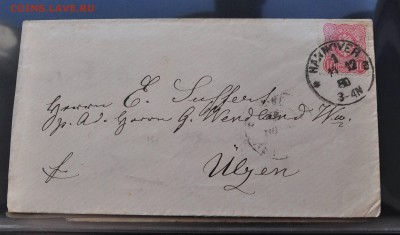 COINS-LAVE.RU
HANNOVER
80
3-4N
Herrn E. Suffert
p. Ad. Herrn G. Wendland Ww
fr
Ülzen